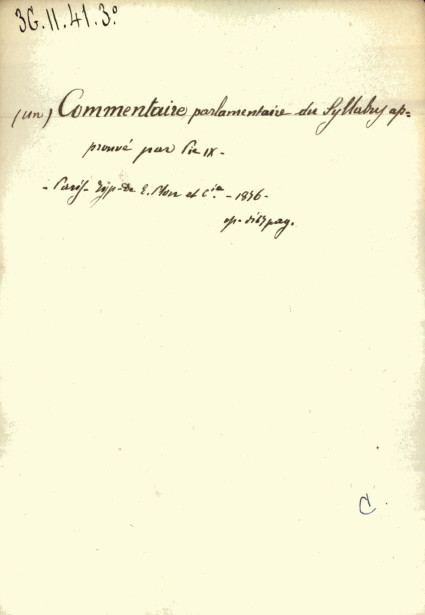 3G.II.41.3º
(un) Commentaire parlamentaire du Syllabus ap=
prouvé par Pie IX-
- Paris- Typ-De E. Plon et C.ie - 1876-
op- di pag.
C